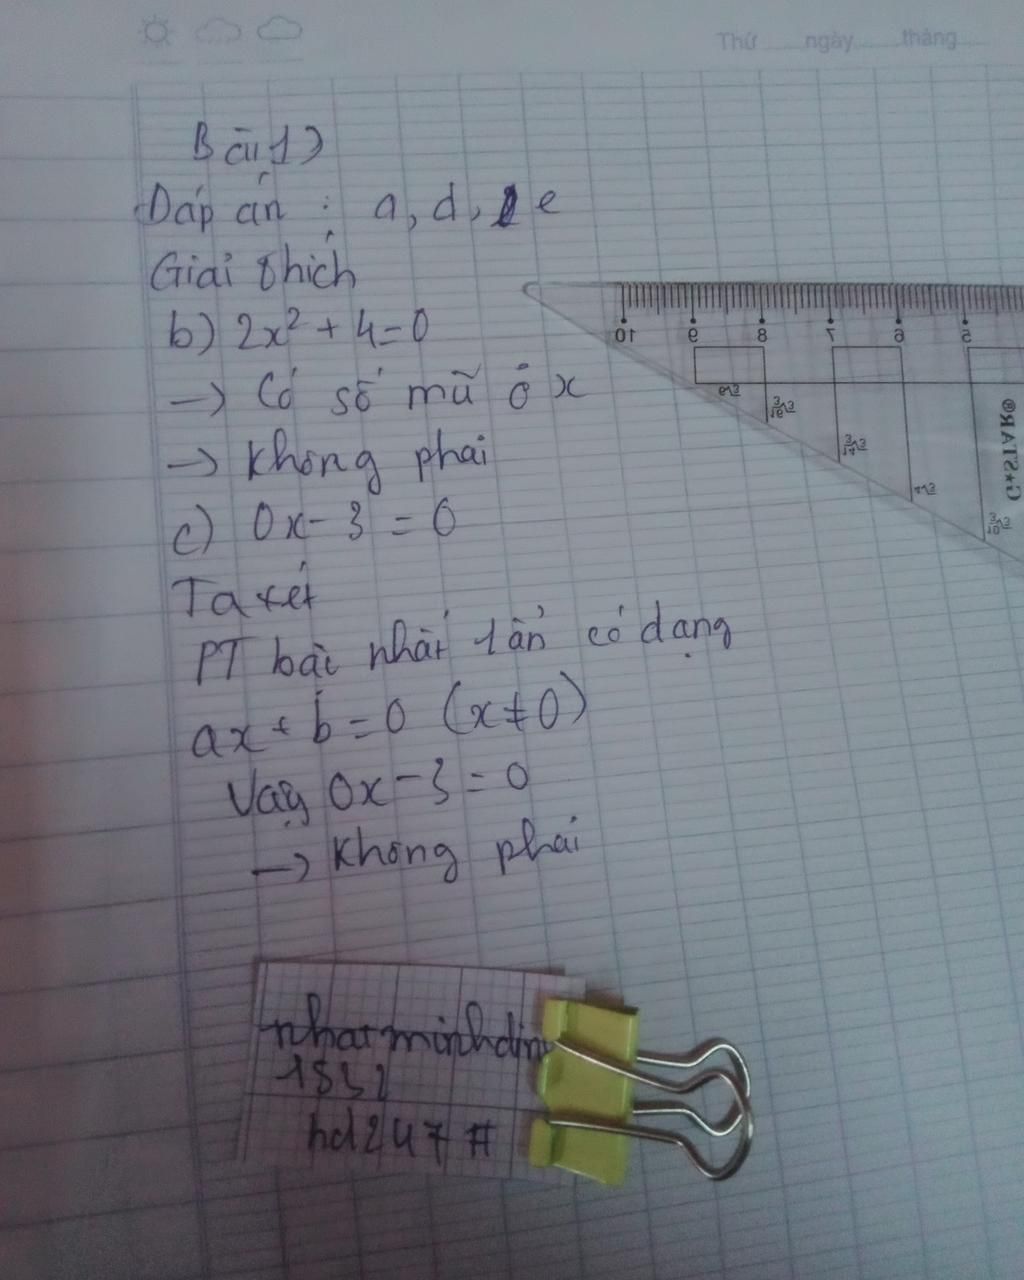 Thứ ngày tháng
Bài 1)
Đáp án : a, d, e
Giải thích
b) 2x² + 4 = 0
→ Có số mũ ở x
→ Không phải
c) 0x - 3 = 0
Ta xét
PT bậc nhất 1 ẩn có dạng
ax + b = 0 (x ≠ 0)
Vậy 0x - 3 = 0
→ Không phải
10 9 8 7 6 5
G*STAR®
nhatminhdin
1532
hd247 #